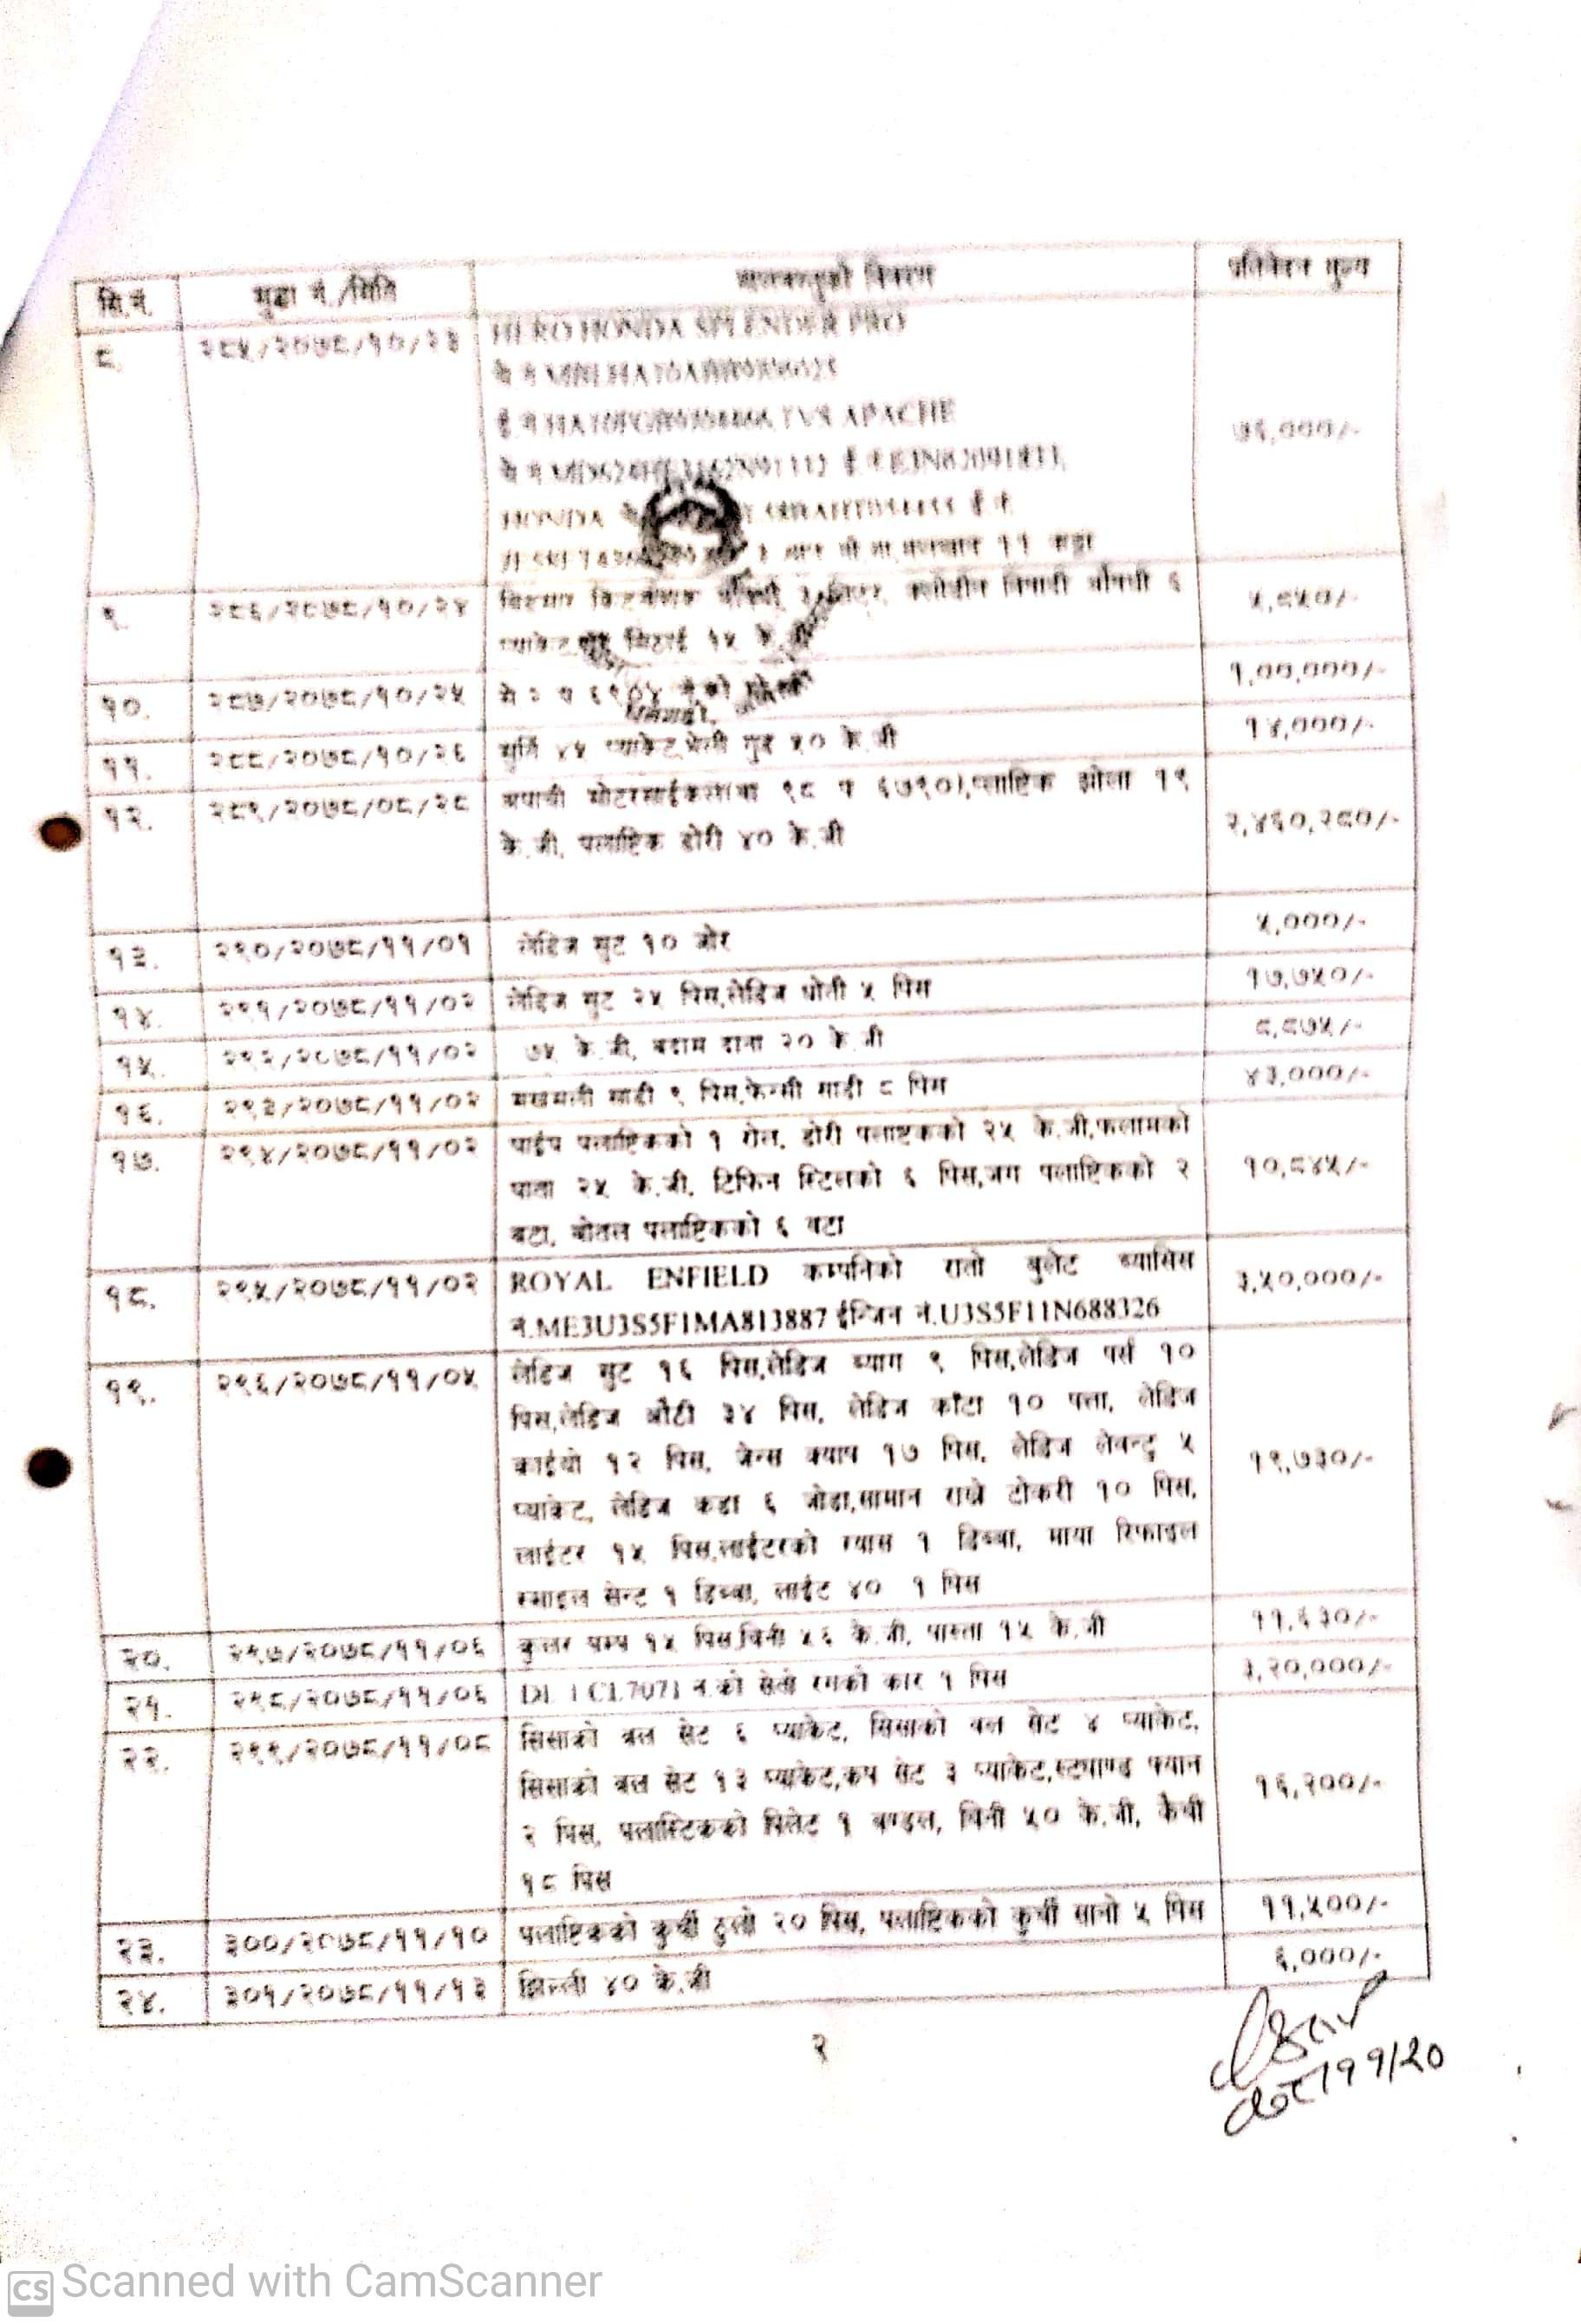 सि.नं. मुद्दा नं./मिति मालवस्तुको विवरण प्रतिवेदन मुल्य
८. २८५/२०७८/१०/२३ HERO HONDA SPLENDER PRO
TVS APACHE
७६,०००/-
HONDA
९. २८६/२०७८/१०/२४ औषधी ६ ५,८५०/-
प्याकेट मिठाई १५ के.जी
१०. २८७/२०७८/१०/२५ से २ प ६९०४ १,००,०००/-
११. २८८/२०७८/१०/२६ सुर्ति ४५ प्याकेट,भेली गुड ५० के.जी १४,०००/-
१२. २८९/२०७८/०८/२८ अपाची मोटरसाईकल(बा ९८ प ६७९०),प्लाष्टिक झोला १९
के.जी, पलाष्टिक डोरी ४० के.जी २,४६०,२८०/-
१३. २९०/२०७८/११/०१ लेडिज सुट १० जोर ५,०००/-
१४. २९१/२०७८/११/०२ लेडिज सुट २५ पिस,लेडिज धोती ५ पिस १७,७५०/-
१५. २९२/२०७८/११/०२ ७५ के.जी, बदाम दाना २० के.जी ८,८७५/-
१६. २९३/२०७८/११/०२ मखमली साडी ९ पिस,फेन्सी साडी ८ पिस ४३,०००/-
१७. २९४/२०७८/११/०२ पाईप पलाष्टिकको १ रोल, डोरी पलाष्टकको २५ के.जी,फलामको
पाता २५ के.जी, टिफिन स्टिलको ६ पिस,जग पलाष्टिकको २ १०,८४५/-
वटा, बोतल पलाष्टिकको ६ वटा
१८. २९५/२०७८/११/०२ ROYAL ENFIELD कम्पनिको रातो बुलेट च्यासिस ३,५०,०००/-
नं.ME3U3S5F1MA813887 ईन्जिन नं.U3S5F11N688326
१९. २९६/२०७८/११/०५ लेडिज सुट १६ पिस,लेडिज ब्याग ९ पिस,लेडिज पर्स १०
पिस,लेडिज औठी ३४ पिस, लेडिज काँटा १० पत्ता, लेडिज
काईयो १२ पिस, जेन्स क्याप १७ पिस, लेडिज लेवन्टु ५ १९,७३०/-
प्याकेट, लेडिज कडा ६ जोडा,सामान राख्ने टोकरी १० पिस,
लाईटर १५ पिस,लाईटरको ग्यास १ डिब्बा, माया रिफाइल
स्माइल सेन्ट १ डिब्बा, लाईट ४० १ पिस
२०. २९७/२०७८/११/०६ कुलर पम्प १५ पिस,चिनी ५६ के.जी, पास्ता १५ के.जी ११,६३०/-
२१. २९८/२०७८/११/०६ DL 1 CL7071 नं.को सेतो रंगको कार १ पिस ३,२०,०००/-
२२. २९९/२०७८/११/०८ सिसाको बल सेट ६ प्याकेट, सिसाको बल सेट ४ प्याकेट,
सिसाको बल सेट १३ प्याकेट,कप सेट ३ प्याकेट,स्ट्याण्ड फ्यान १६,२००/-
२ पिस, पलास्टिकको पिलेट १ बण्डल, चिनी ५० के.जी, कैची
१८ पिस
२३. ३००/२०७८/११/१० पलाष्टिकको कुर्ची ठुलो २० पिस, पलाष्टिकको कुर्ची सानो ५ पिस ११,५००/-
२४. ३०१/२०७८/११/१३ झिल्ली ४० के.जी ६,०००/-
२
CS Scanned with CamScanner